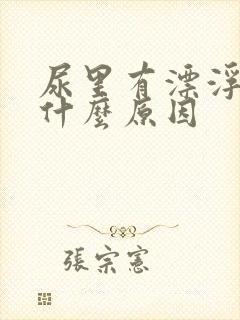 尿里有漂浮
什麼原因
張宗憲